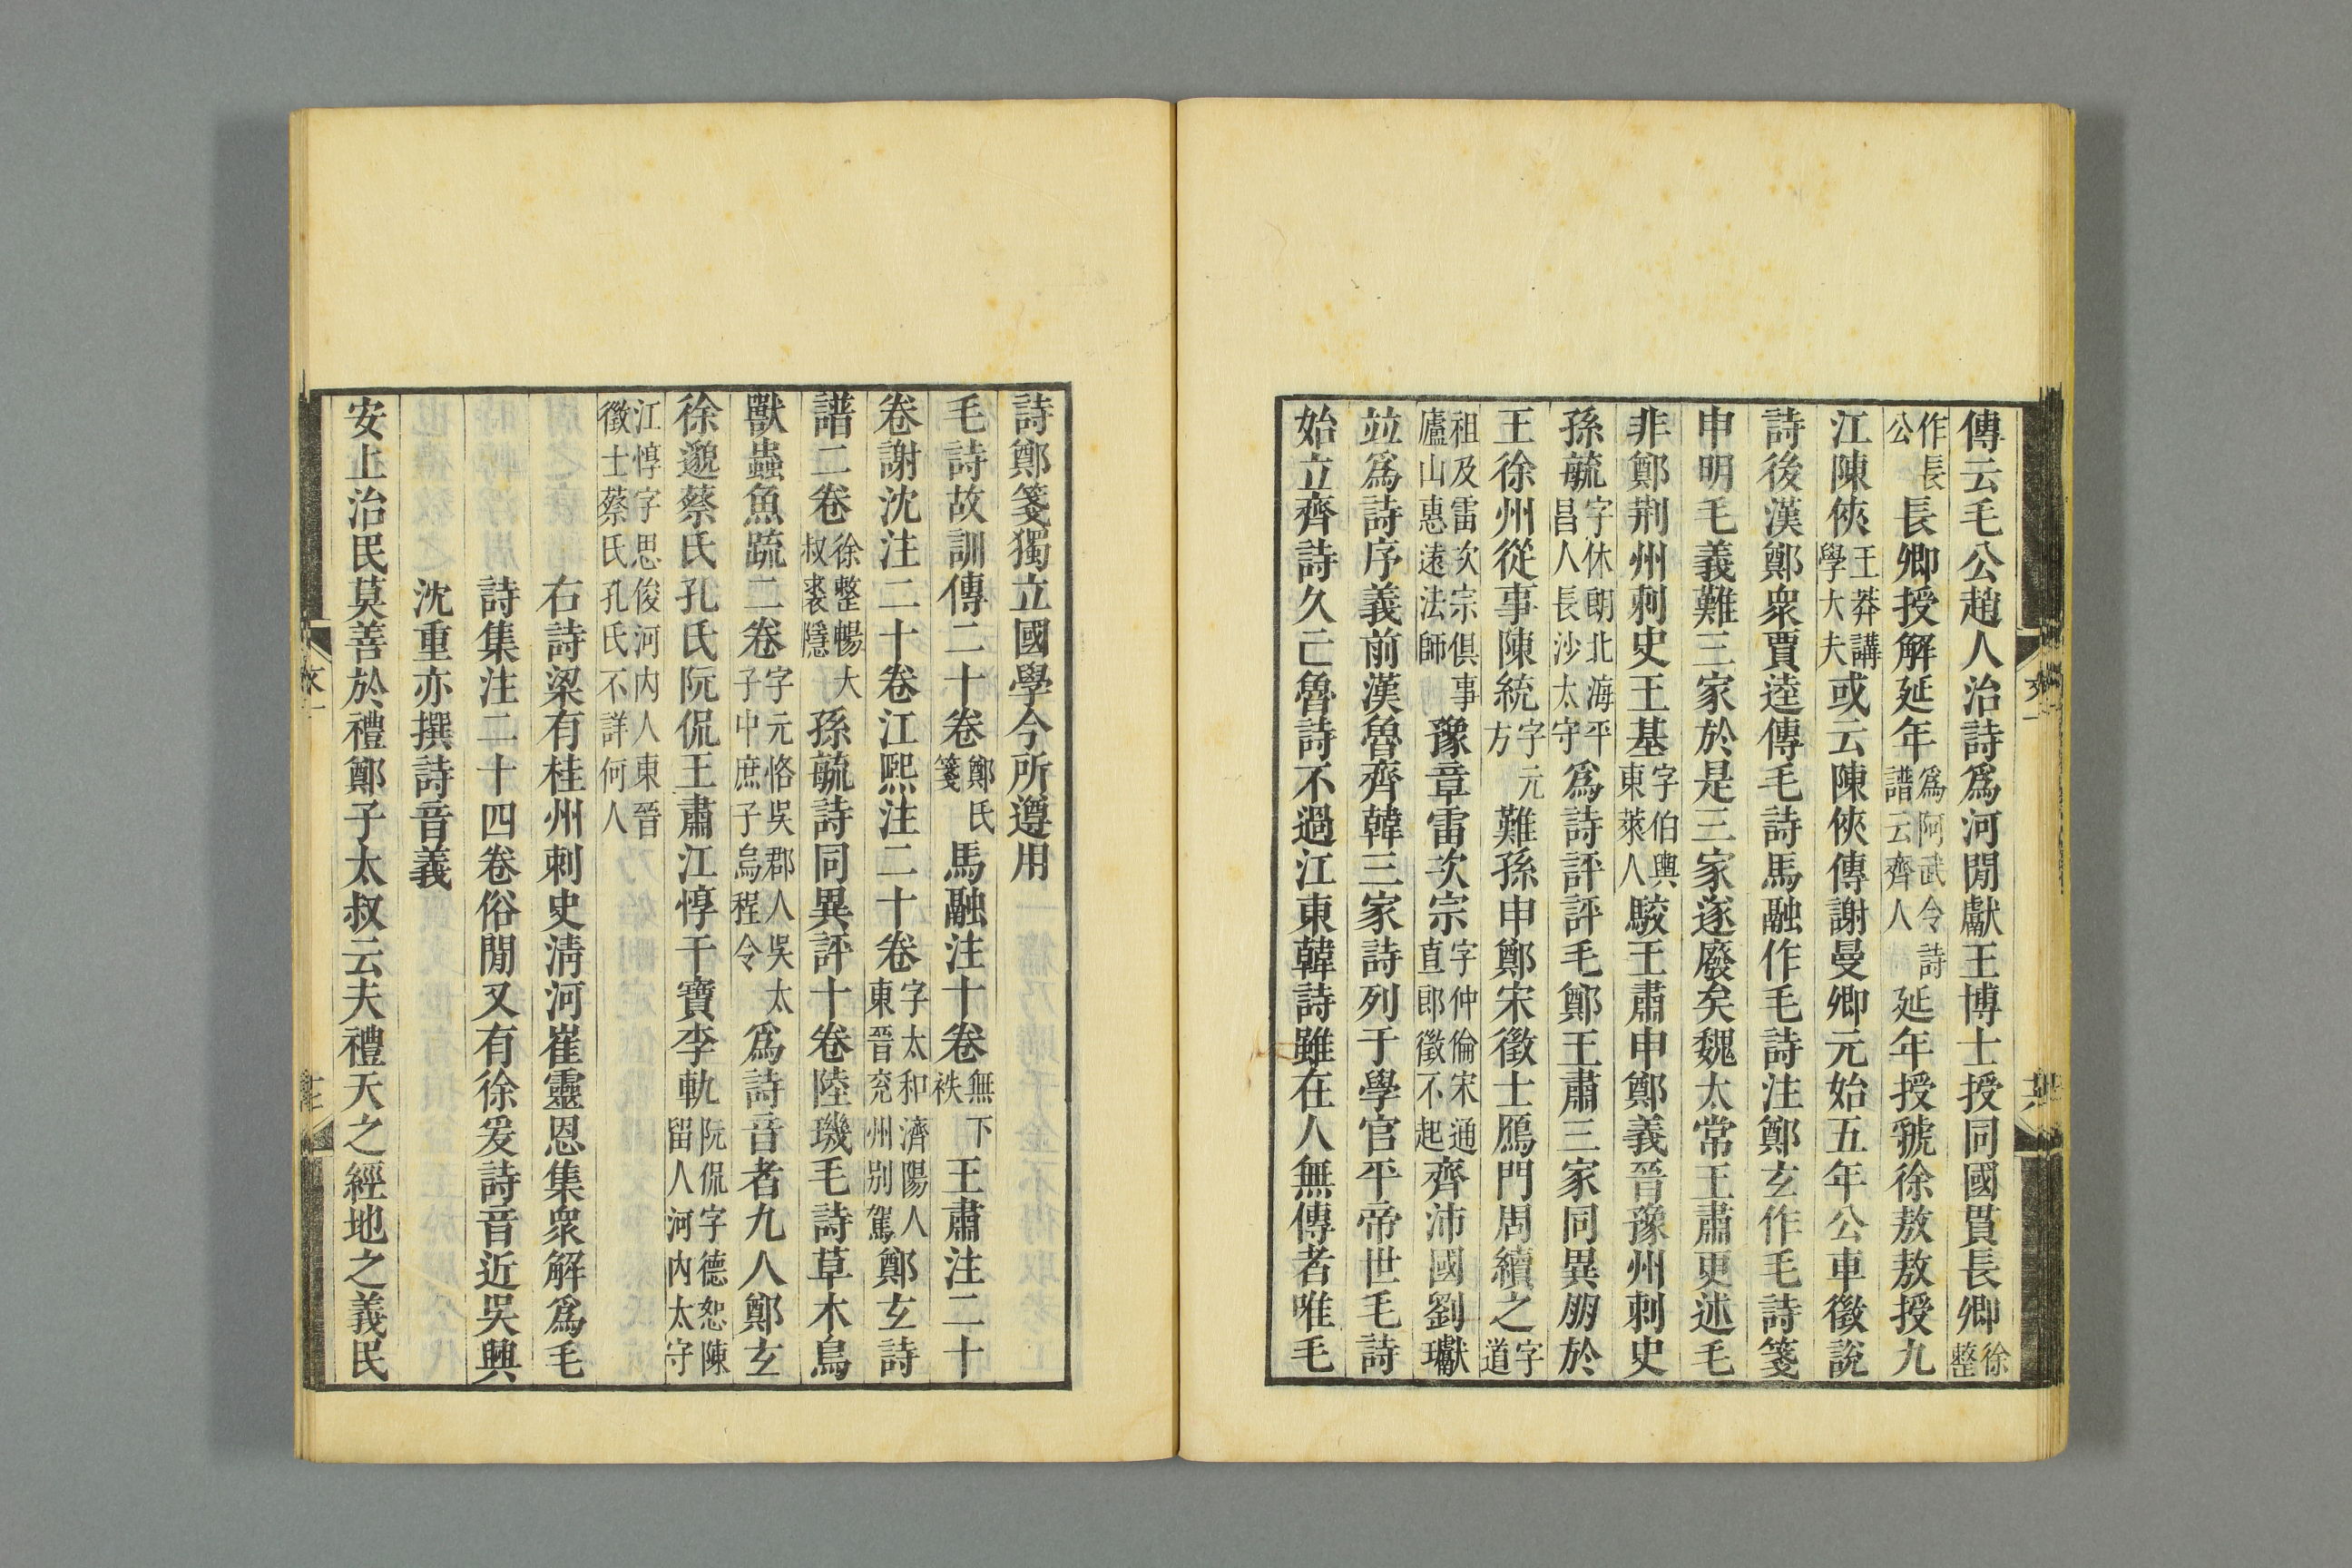 傳云毛公趙人治詩爲河閒獻王博士授同國貫長卿徐整
作長公長卿授解延年爲阿武令詩譜云齊人延年授虢徐敖敖授九
江陳俠王莽講學大夫或云陳俠傳謝曼卿元始五年公車徵說
詩後漢鄭衆賈逵傳毛詩馬融作毛詩注鄭玄作毛詩箋
申明毛義難三家於是三家遂廢矣魏太常王肅更述毛
非鄭荆州刺史王基字伯輿東萊人駮王肅申鄭義晉豫州刺史
孫毓字休朗北海平昌人長沙太守爲詩評評毛鄭王肅三家同異朋於
王徐州從事陳統字元方難孫申鄭宋徵士鴈門周續之字道
祖及雷次宗俱事廬山惠遠法師豫章雷次宗字仲倫宋通直郎徵不起齊沛國劉瓛
竝爲詩序義前漢魯齊韓三家詩列于學官平帝世毛詩
始立齊詩久亡魯詩不過江東韓詩雖在人無傳者唯毛
詩鄭箋獨立國學今所遵用
毛詩故訓傳二十卷鄭氏箋馬融注十卷無下袟王肅注二十
卷謝沈注二十卷江熙注二十卷字太和濟陽人東晉兖州別駕鄭玄詩
譜二卷徐整暢大叔裘隱孫毓詩同異評十卷陸璣毛詩草木鳥
獸蟲魚疏二卷字元恪吳郡人吳太子中庶子烏程令爲詩音者九人鄭玄
徐邈蔡氏孔氏阮侃王肅江惇干寶李軌阮侃字德恕陳留人河內太守
江惇字思俊河內人東晉徵士蔡氏孔氏不詳何人
右詩梁有桂州刺史淸河崔靈恩集衆解爲毛
詩集注二十四卷俗閒又有徐爰詩音近吳興
沈重亦撰詩音義
安上治民莫善於禮鄭子太叔云夫禮天之經地之義民